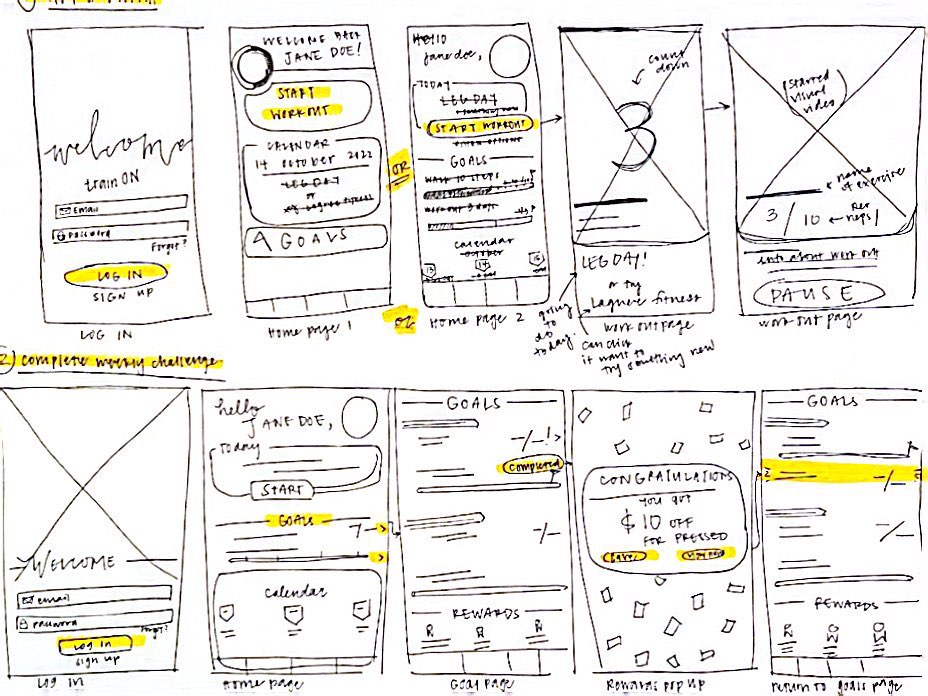 WELCOME BACK
JANE DOE!
START
WORKOUT
CALENDAR
14 october 2022
LEG DAY
or
Lagree fitness
GOALS
Hello
jane doe,
TODAY
LEG DAY
START WORKOUT
GOALS
WALK 10 STEPS
WORKOUT 3 days
calendar
october
13
14
15
OR
OR
count
down
3
LEG DAY!
or try
Lagree fitness
going
to
do
today.
workout page
can click
if want to
try something new
visual
video
name
of exercise
3 / 10
reps
info about work out
PAUSE
workout page
welcome
train ON
Email
Password
Forgot?
LOG IN
SIGN UP
LOG IN
Home page 1
Home page 2
2) complete weekly challenge
WELCOME
email
password
forgot?
LOG IN
sign up
LOG IN
hello
JANE DOE,
Today
START
GOALS
calendar
Home page
GOALS
-/-!
Completed
-/-
REWARDS
Goal page
CONGRATULATIONS
YOU GOT
$10 OFF
FOR PRESSED
Rewards pop up
GOALS
-/-
-/-
REWARDS
return to goals page